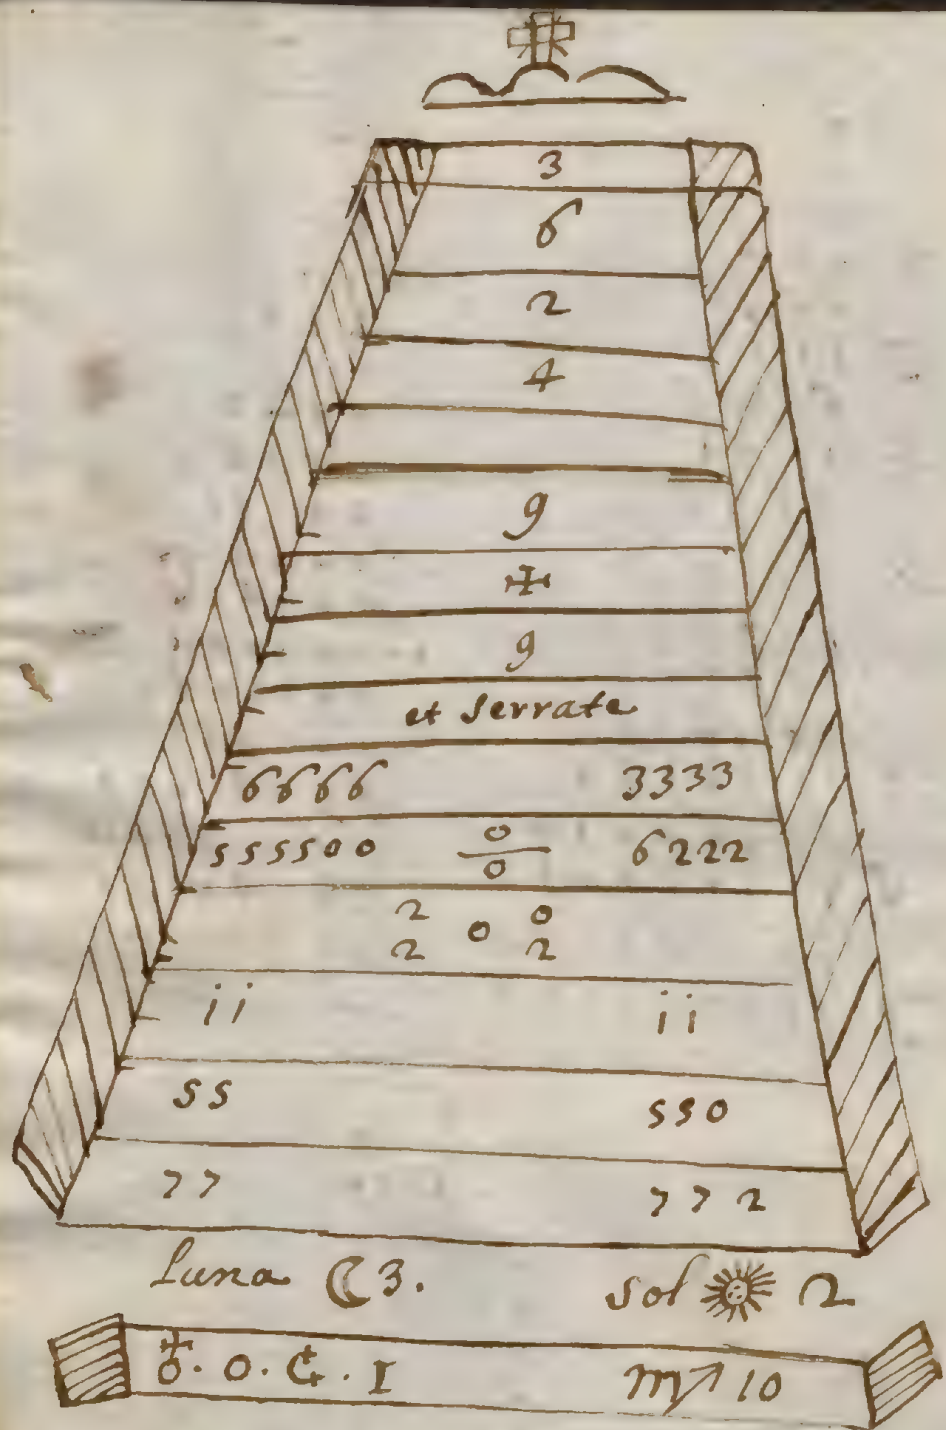 3
6
2
4
9
✠
9
et serrate
6666 3333
555500 0/0 6222
2 0 0
2 2
ii ii
55 550
77 772
Luna ☾ 3. Sol ☀ 2
♁. 0. . I ♏ 10